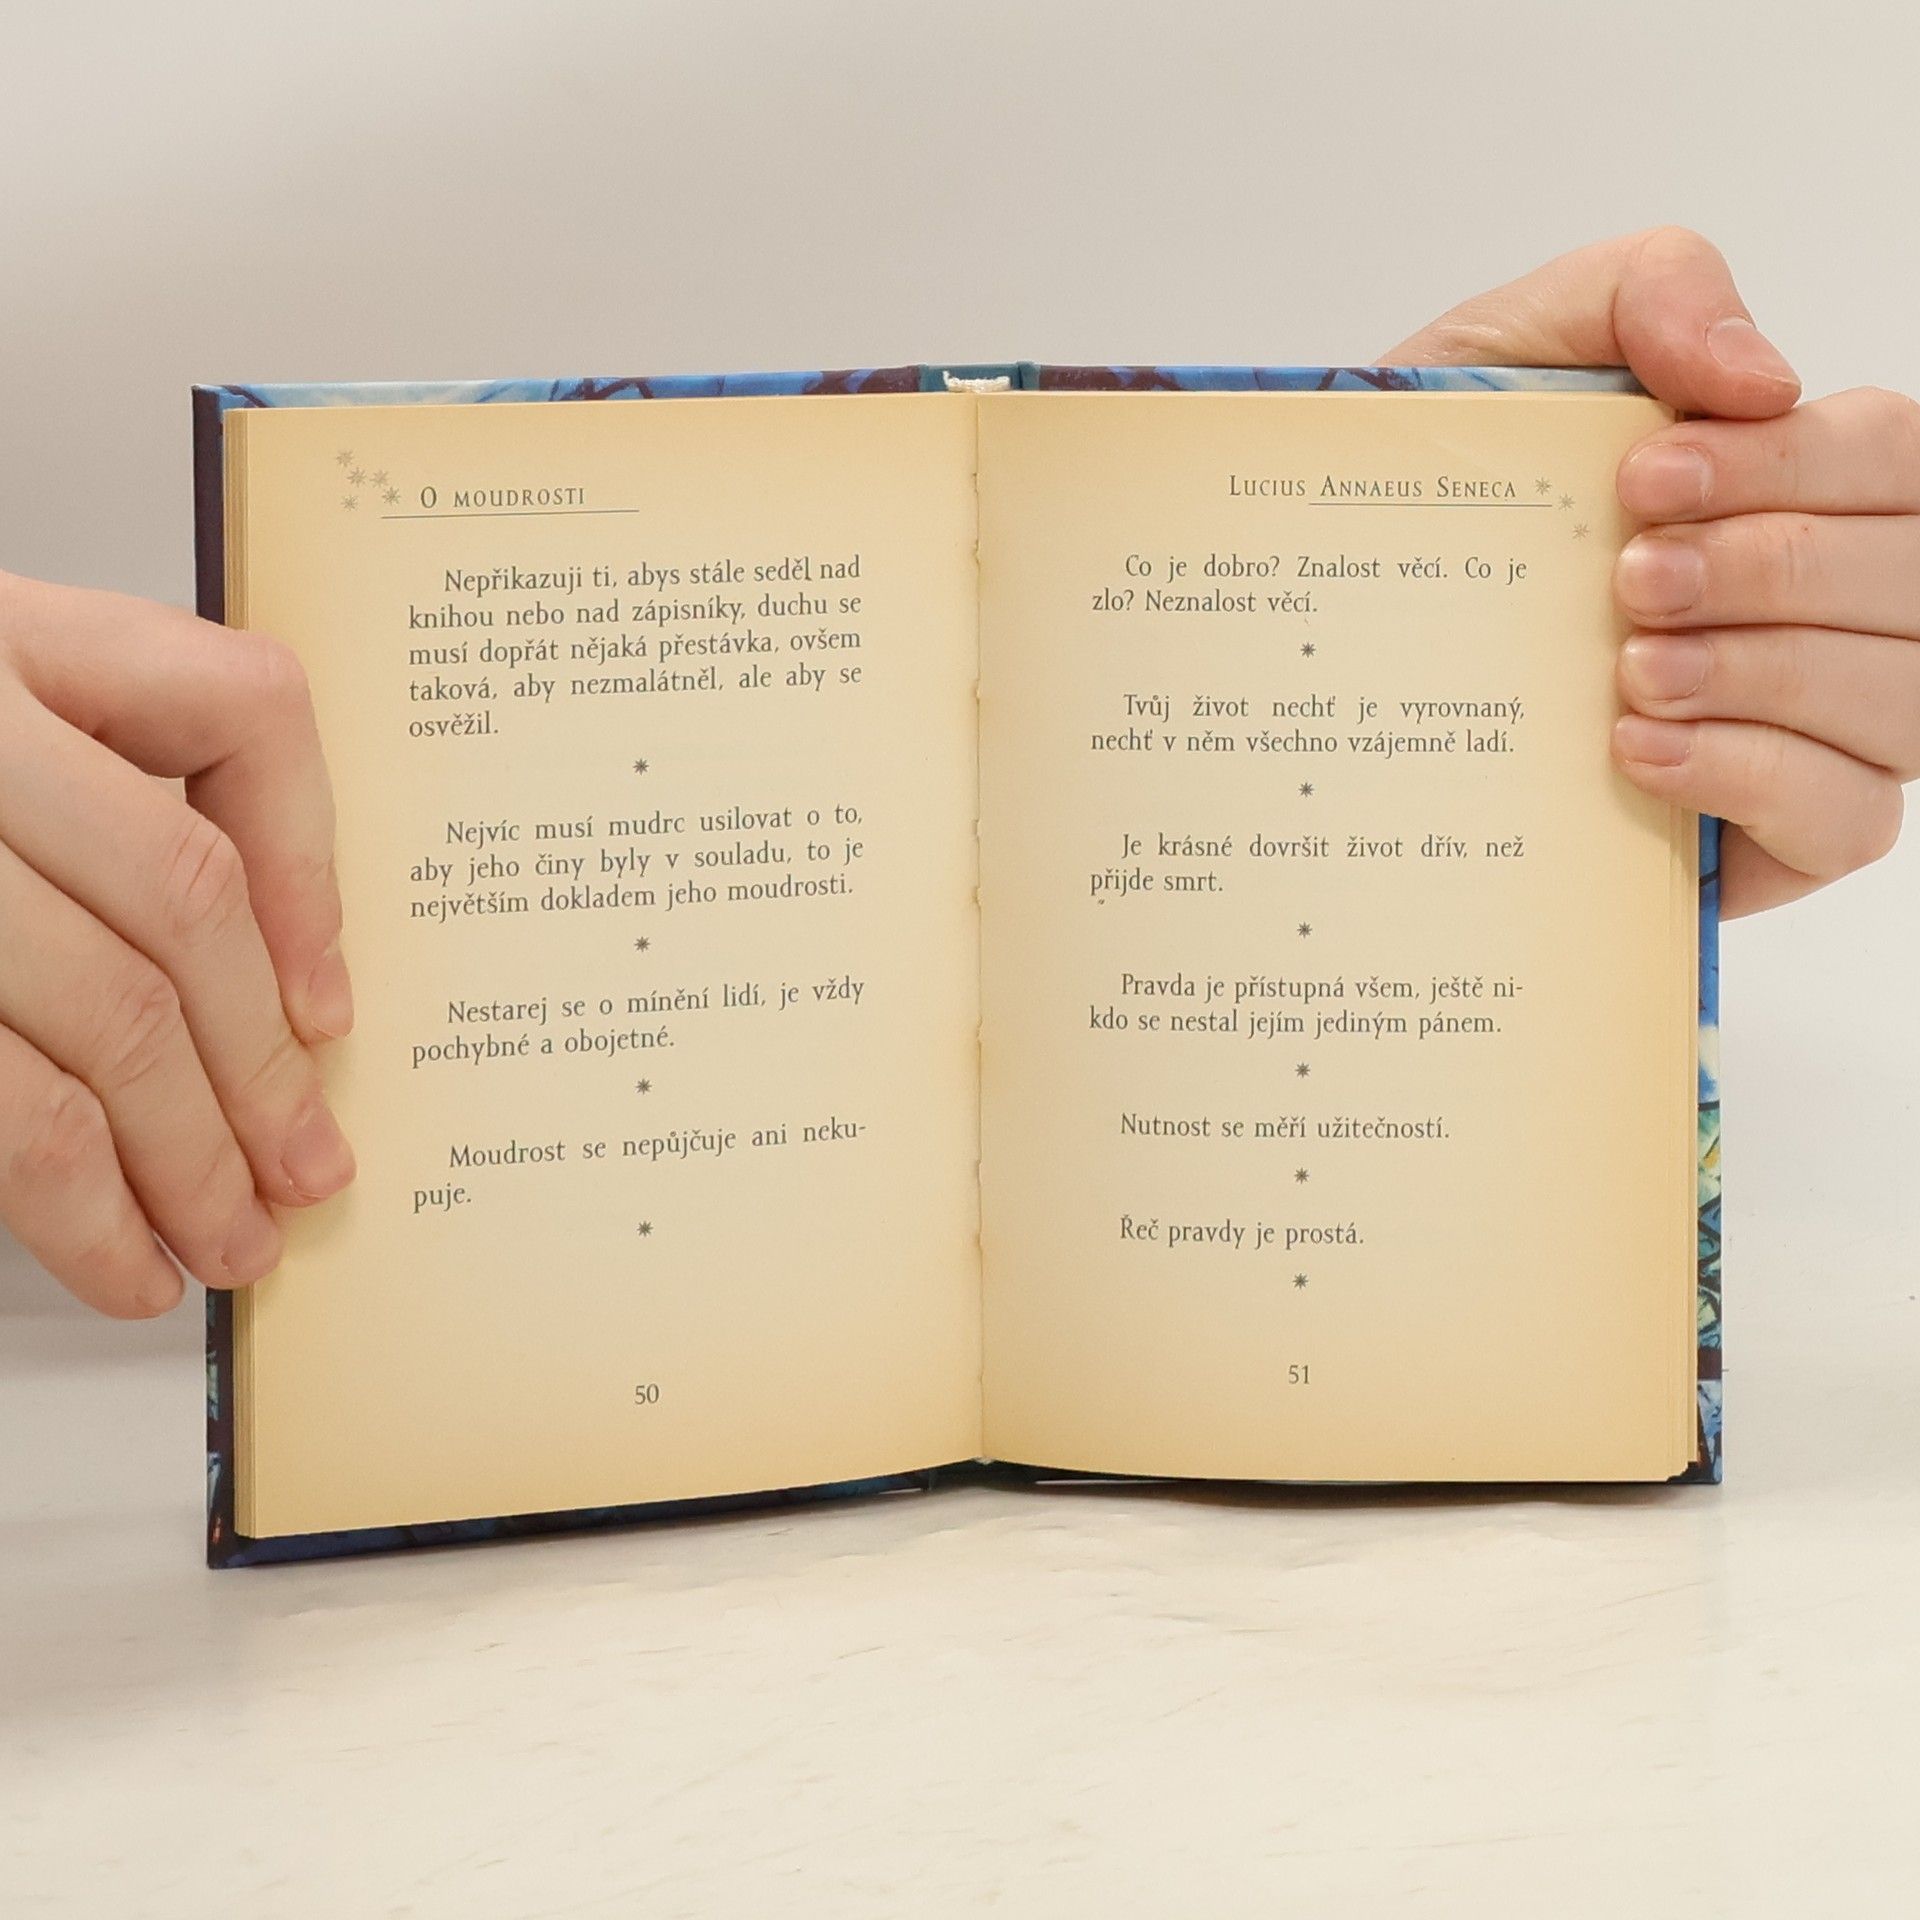 O MOUDROSTI
Nepřikazuji ti, abys stále seděl nad
knihou nebo nad zápisníky, duchu se
musí dopřát nějaká přestávka, ovšem
taková, aby nezmalátněl, ale aby se
osvěžil.
Nejvíc musí mudrc usilovat o to,
aby jeho činy byly v souladu, to je
největším dokladem jeho moudrosti.
Nestarej se o mínění lidí, je vždy
pochybné a obojetné.
Moudrost se nepůjčuje ani neku-
puje.
50
LUCIUS ANNAEUS SENECA
Co je dobro? Znalost věcí. Co je
zlo? Neznalost věcí.
Tvůj život nechť je vyrovnaný,
nechť v něm všechno vzájemně ladí.
Je krásné dovršit život dřív, než
přijde smrt.
Pravda je přístupná všem, ještě ni-
kdo se nestal jejím jediným pánem.
Nutnost se měří užitečností.
Řeč pravdy je prostá.
51